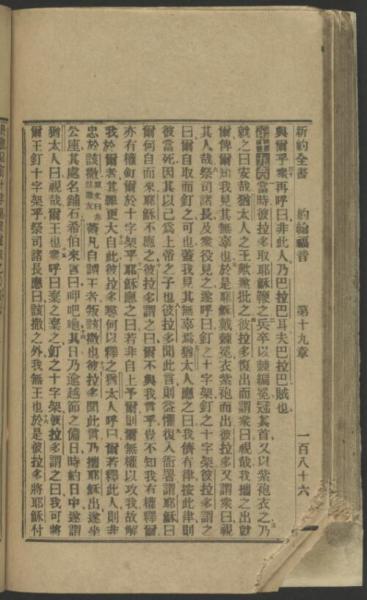 新約全書　約翰福音　第十九章　一百八十六
與爾乎衆再呼曰非此人乃巴拉巴耳夫巴拉巴賊也
第十九章當時彼拉多取耶穌鞭之兵卒以棘編冕冠其首又以紫袍衣之乃
就之曰安哉猶太人之王歟遂批之彼拉多復出而謂衆曰視哉我攜之出就
爾俾爾知我見其無辜也於是耶穌戴棘冕衣紫袍而出彼拉多又謂衆曰視
其人哉祭司諸長及衆役見之遂呼曰釘之十字架釘之十字架彼拉多謂之
曰爾自取而釘之可也蓋我見其無辜焉猶太人應之曰我儕有律按此律則
彼當死因其以己爲上帝之子也彼拉多聞此言則益懼復入衙署謂耶穌曰
爾何自而來耶穌不應之彼拉多謂之曰爾不與我言乎豈不知我有權釋爾
亦有權釘爾於十字架乎耶穌應之曰若非自上予爾則爾無權以攻我故解
我於爾者其罪更大自此彼拉多慫何以釋之猶太人呼曰爾若釋此人則非
忠於該撒蓋凡自謂王者叛該撒也彼拉多聞此言乃攜耶穌出遂坐
公座其處名鋪石希伯來言曰呷吧嗒其日乃逾越節之備日時約日中遂謂
猶太人曰視哉爾王也衆呼曰棄之棄之釘之十字架彼拉多謂之曰我可將
爾王釘十字架乎祭司諸長應曰該撒之外我無王也於是彼拉多將耶穌付